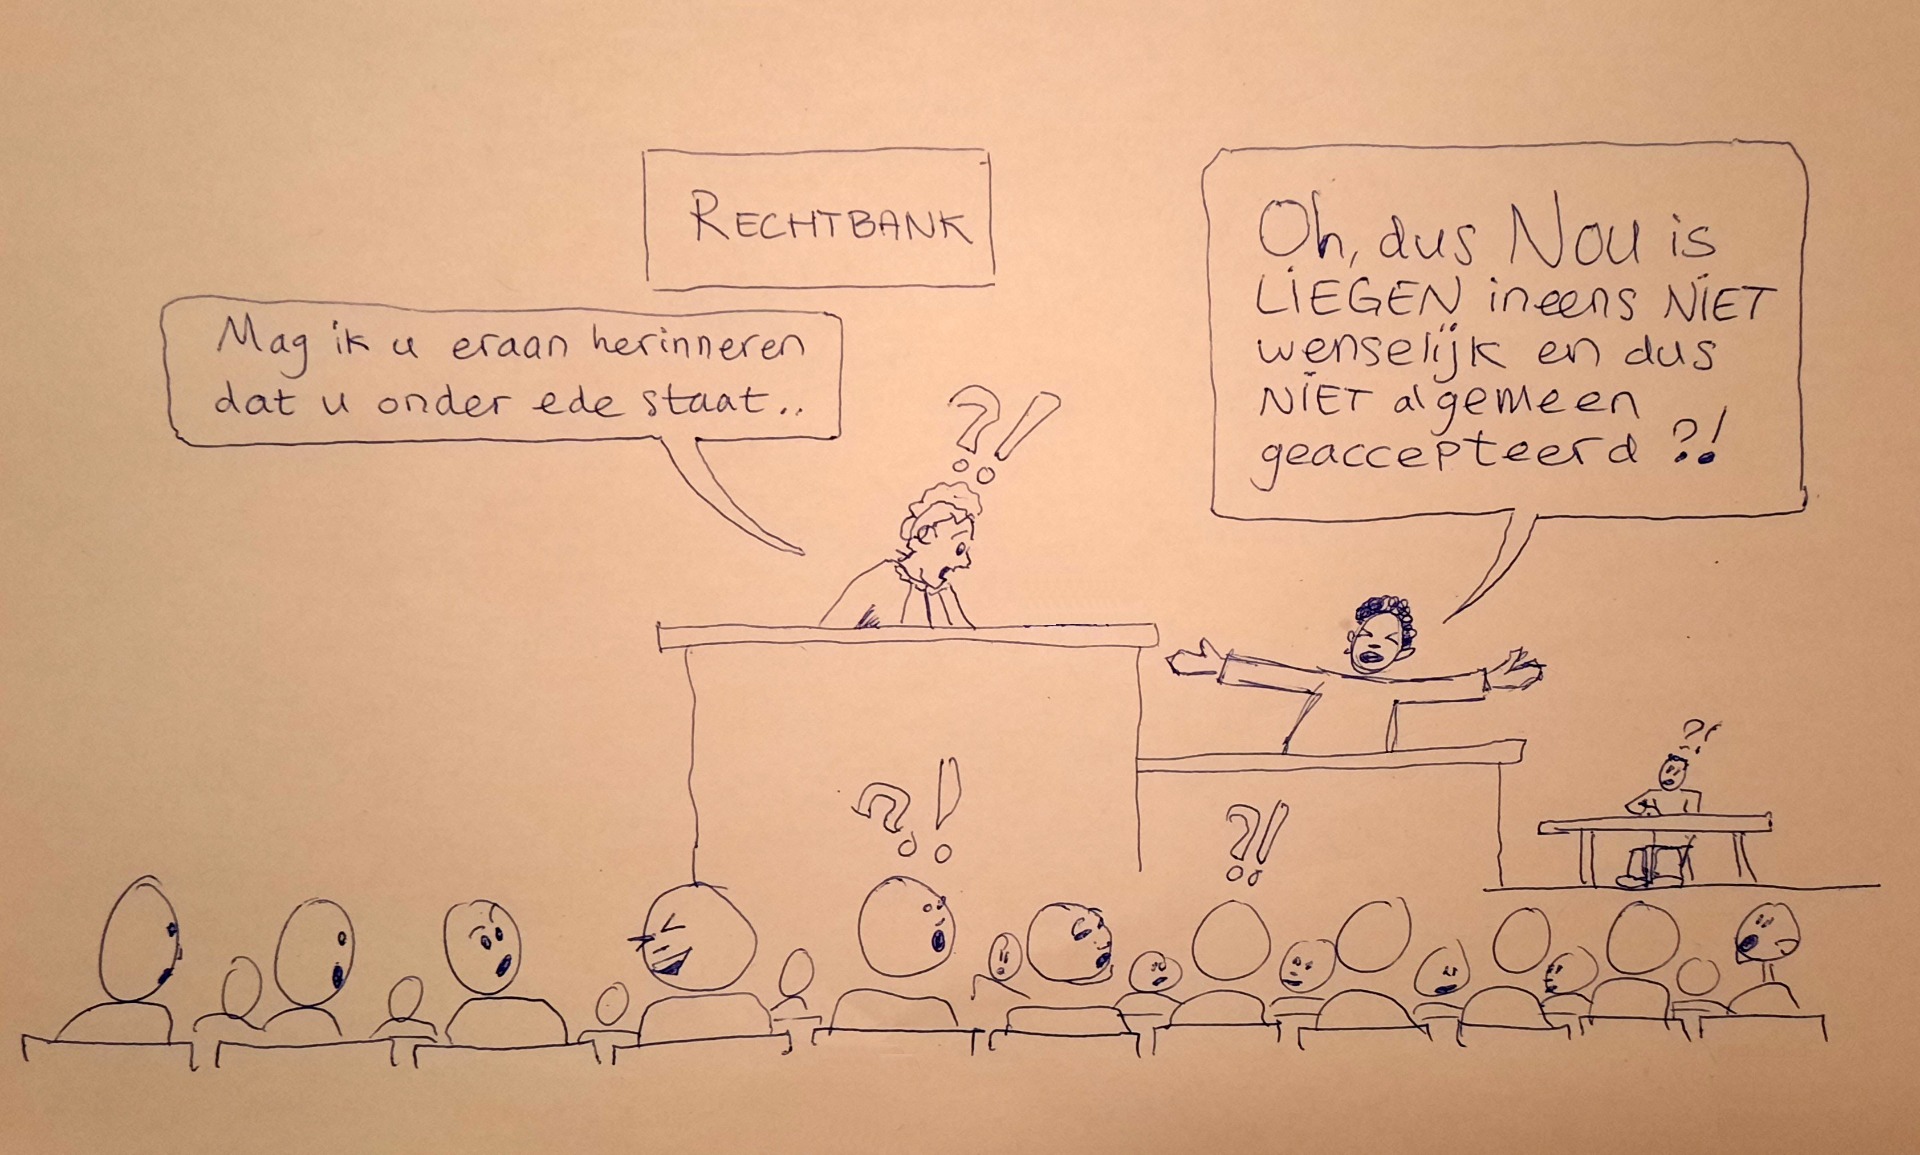 RECHTBANK
Mag ik u eraan herinneren
dat u onder ede staat..
?!
Oh, dus Nou is
LIEGEN ineens NIET
wenselijk en dus
NIET algemeen
geaccepteerd ?!
?!
?!
?!